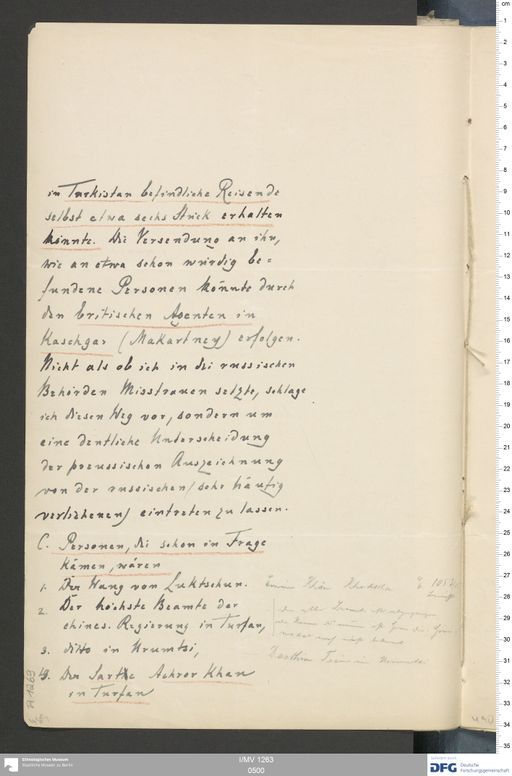 in Turkistan befindliche Reisende
selbst etwa sechs Stück erhalten
könnte. Die Versendung an ihn,
wie an etwa schon würdig be=
fundene Personen könnte durch
den britischen Agenten in
Kaschgar (Makartney) erfolgen.
Nicht als ob ich in die russischen
Behörden Misstrauen setzte, schlage
ich diesen Weg vor, sondern um
eine deutliche Unterscheidung
der preussischen Auszeichnung
von der russischen (sehr häufig
verliehenen) eintreten zu lassen.
C. Personen, die schon in Frage
kämen, wären
1. Der Wang von Luktschun.
2. Der höchste Beamte der
chines. Regierung in Turfan,
3. ditto in Urumtsi,
4. Der Sarte Achror Khan
in Turfan
Emin Khan Khodscha
I/MV 1263
0500
Ethnologisches Museum
Staatliche Museen zu Berlin
DFG Deutsche
Forschungsgemeinschaft
cm
1
2
3
4
5
6
7
8
9
10
11
12
13
14
15
16
17
18
19
20
21
22
23
24
25
26
27
28
29
30
31
32
33
34
35